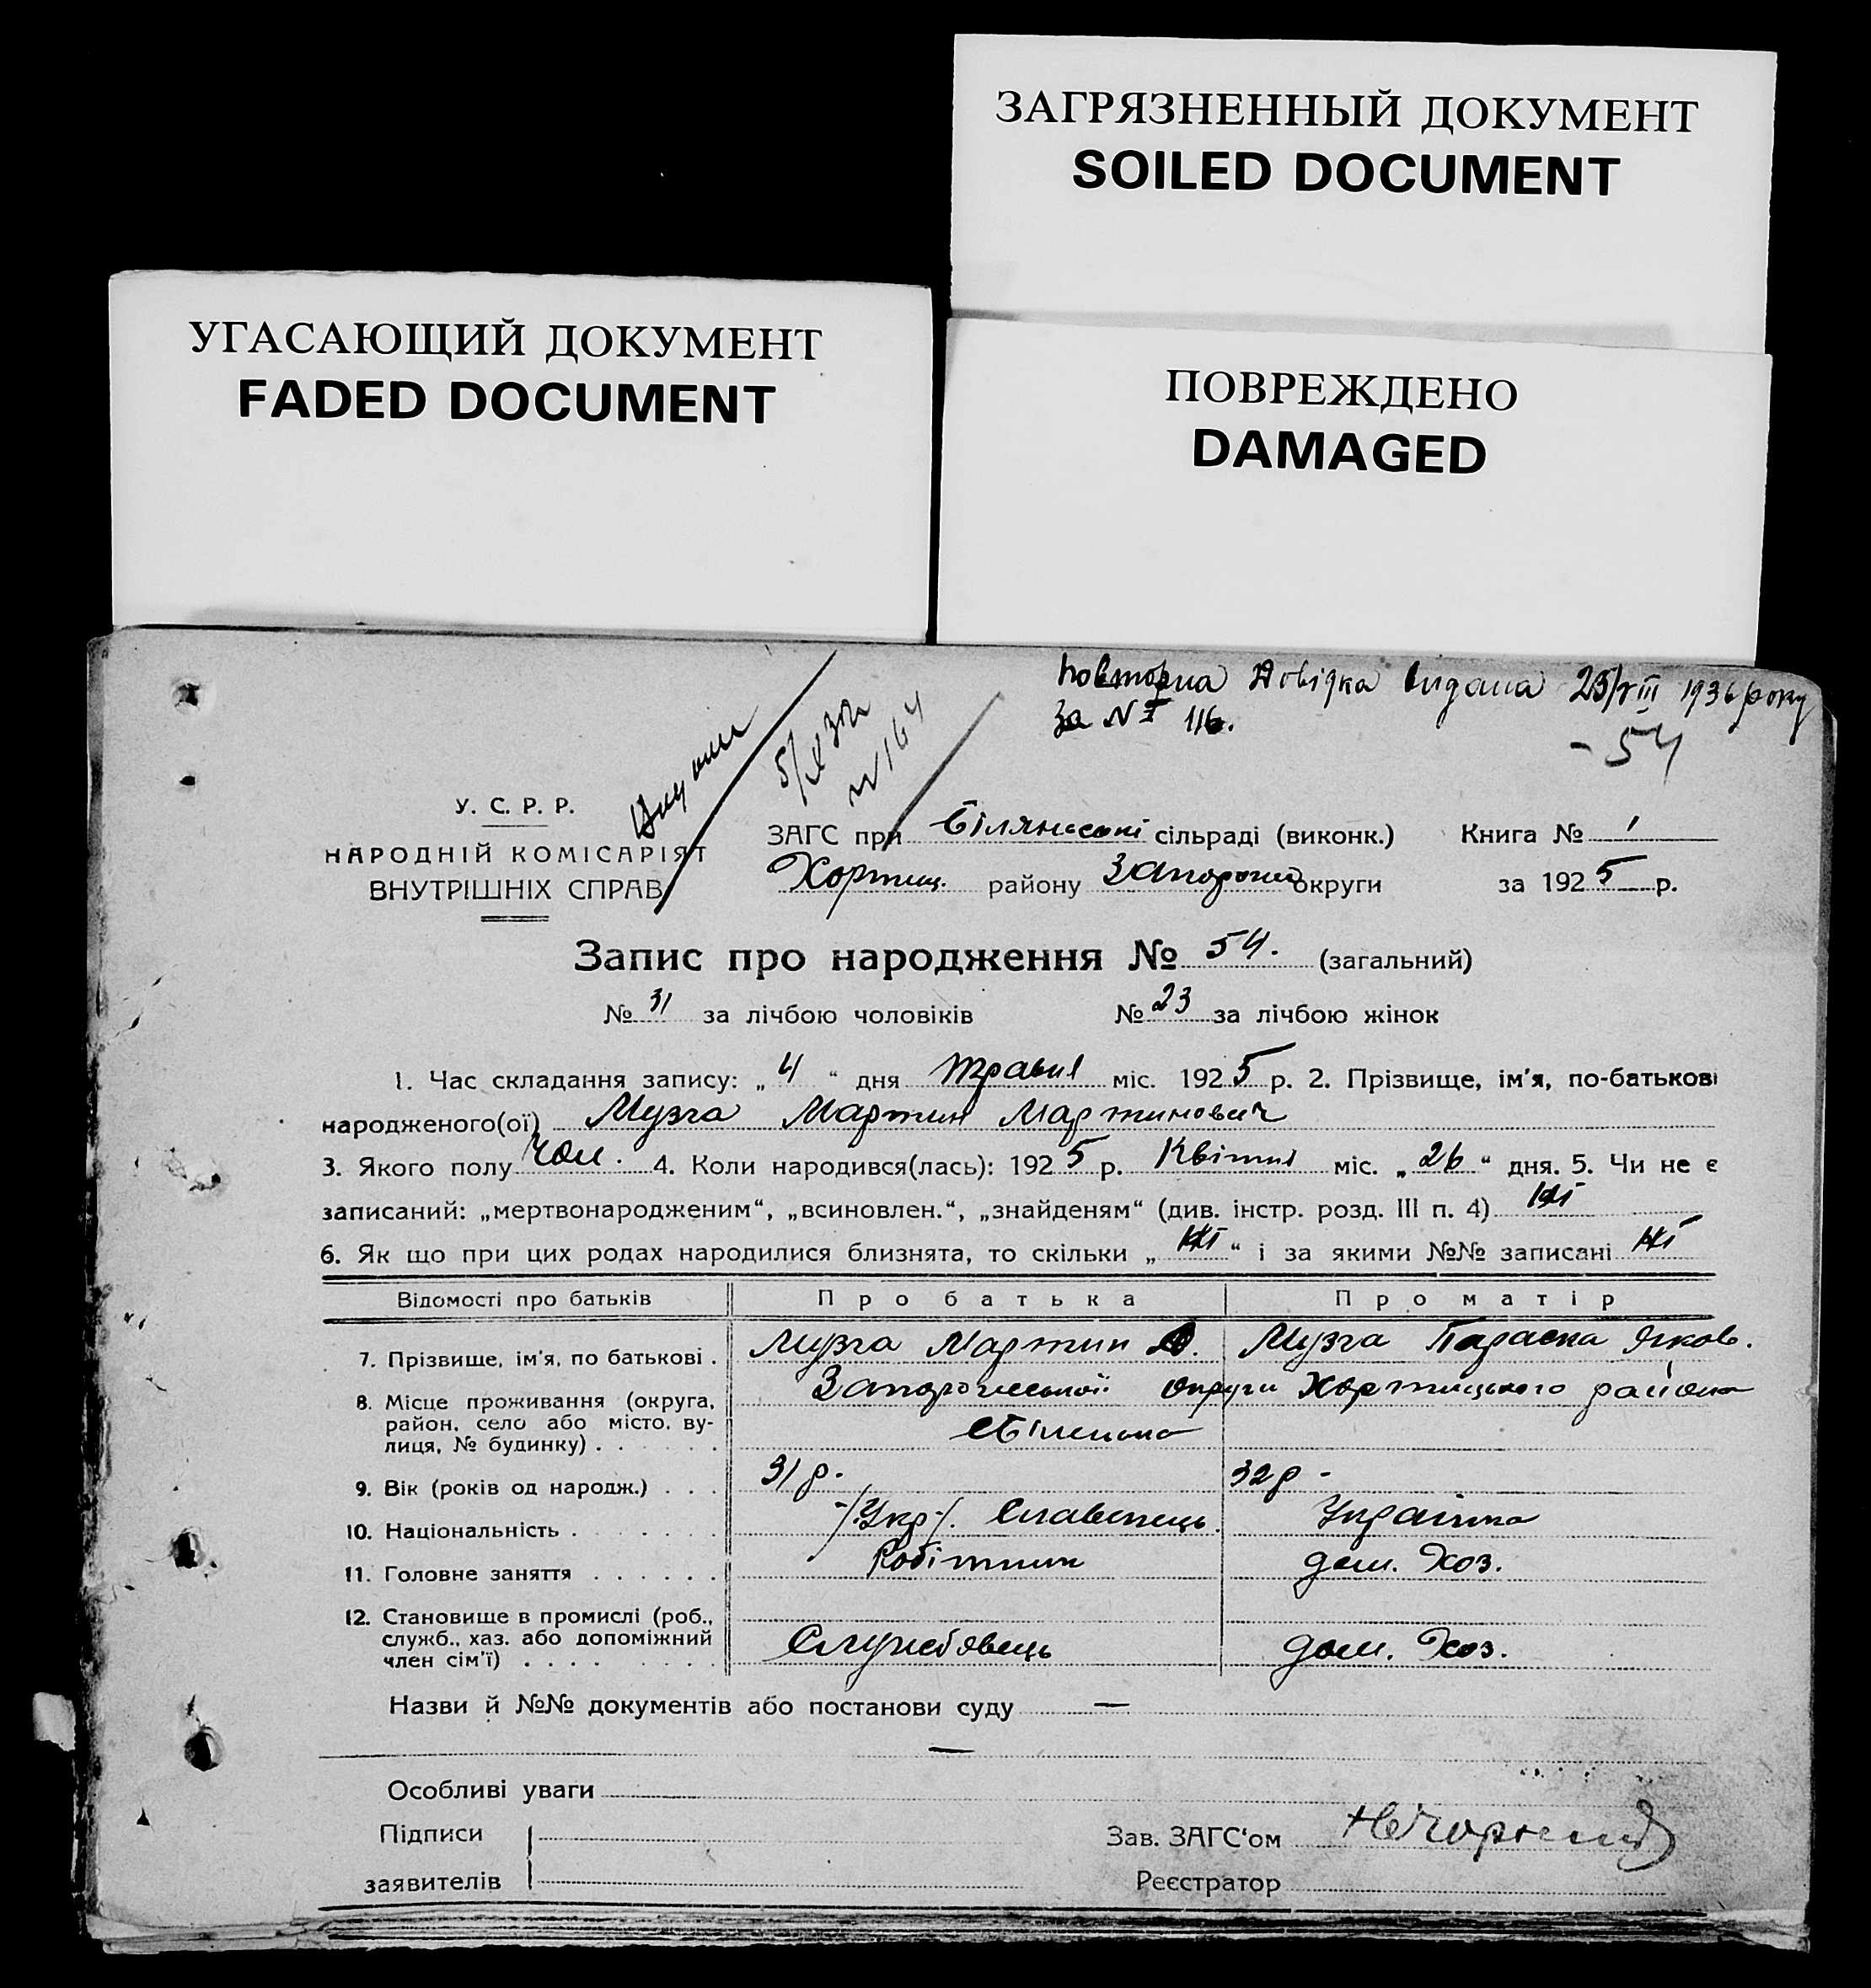 ЗАГРЯЗНЕННЫЙ ДОКУМЕНТ
SOILED DOCUMENT
УГАСАЮЩИЙ ДОКУМЕНТ
FADED DOCUMENT
ПОВРЕЖДЕНО
DAMAGED
повторна Довідка видана 25/VIII 1936 року
За № 116.
- 54
№ 164
У. С. Р. Р.
НАРОДНІЙ КОМІСАРІЯТ
ВНУТРІШНІХ СПРАВ
ЗАГС при сільраді (виконк.) Книга № 1
Хортиц. району округи за 1925 р.
Запис про народження № 54. (загальний)
№ 31 за лічбою чоловіків № 23 за лічбою жінок
1. Час складання запису: „ 4 “ дня травня міс. 1925 р. 2. Прізвище, ім'я, по-батькові
народженого(ої) Музга Мартин Мартинович
3. Якого полу Чол. 4. Коли народився(лась): 1925 р. Квітня міс. „ 26 “ дня. 5. Чи не є
записаний: „мертвонародженим“, „всиновлен.“, „знайденям“ (див. інстр. розд. III п. 4) Ні
6. Як що при цих родах народилися близнята, то скільки „ Ні “ і за якими №№ записані Ні
Відомості про батьків Про батька Про матір
7. Прізвище, ім'я, по батькові . Музга Мартин Музга Параска Яков.
8. Місце проживання (округа, Запорожської округи Хортицького района
район, село або місто, ву-
лиця, № будинку) . . . . .
9. Вік (років од народж.) . . . 31 р. 32 р -
10. Національність . . . . . . /Укр/. Українка
11. Головне заняття . . . . . . Робітник дом. Хоз.
12. Становище в промислі (роб.,
служб., хаз. або допоміжний
член сім'ї) . . . . . . . Службовець дом. Хоз.
Назви й №№ документів або постанови суду —
—
Особливі уваги
Підписи
заявителів
Зав. ЗАГС‘ом
Реєстратор